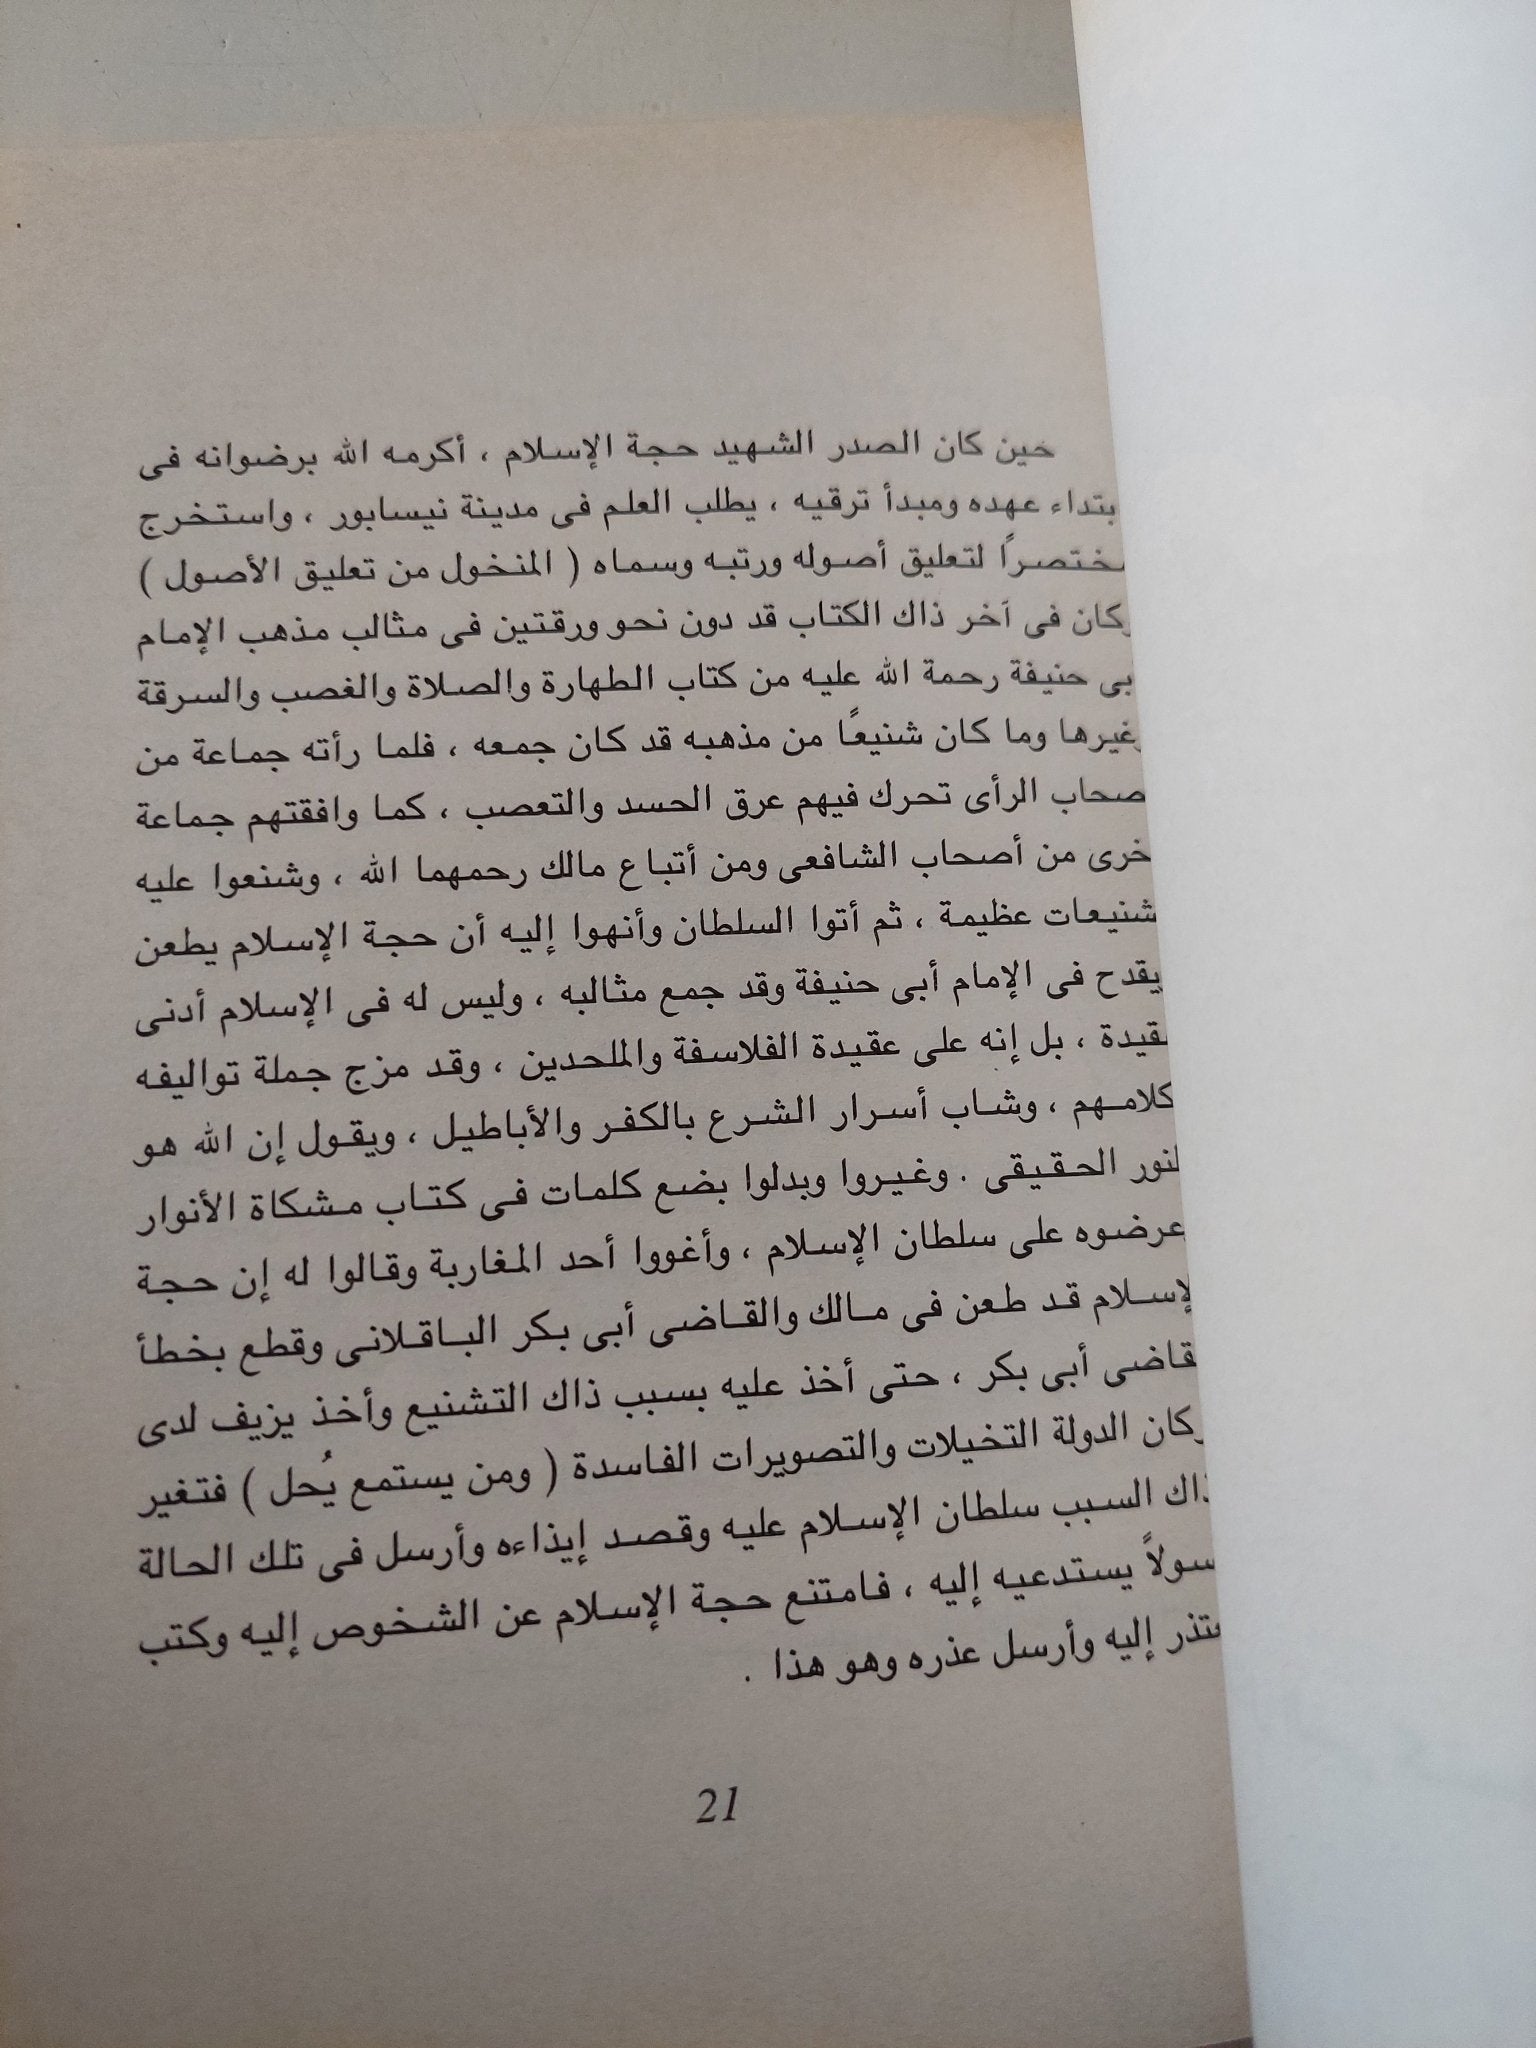 حين كان الصدر الشهيد حجة الإسلام ، أكرمه الله برضوانه فى
بتداء عهده ومبدأ ترقيه ، يطلب العلم فى مدينة نيسابور ، واستخرج
مختصراً لتعليق أصوله ورتبه وسماه ( المنخول من تعليق الأصول )
وكان فى آخر ذاك الكتاب قد دون نحو ورقتين فى مثالب مذهب الإمام
بى حنيفة رحمة الله عليه من كتاب الطهارة والصلاة والغصب والسرقة
وغيرها وما كان شنيعًا من مذهبه قد كان جمعه ، فلما رأته جماعة من
صحاب الرأى تحرك فيهم عرق الحسد والتعصب ، كما وافقتهم جماعة
خرى من أصحاب الشافعى ومن أتباع مالك رحمهما الله ، وشنعوا عليه
شنيعات عظيمة ، ثم أتوا السلطان وأنهوا إليه أن حجة الإسلام يطعن
يقدح فى الإمام أبى حنيفة وقد جمع مثالبه ، وليس له فى الإسلام أدنى
عقيدة ، بل إنه على عقيدة الفلاسفة والملحدين ، وقد مزج جملة تواليفه
كلامهم ، وشاب أسرار الشرع بالكفر والأباطيل ، ويقول إن الله هو
لنور الحقيقى . وغيروا وبدلوا بضع كلمات فى كتاب مشكاة الأنوار
عرضوه على سلطان الإسلام ، وأغووا أحد المغاربة وقالوا له إن حجة
لإسلام قد طعن فى مالك والقاضى أبى بكر الباقلانى وقطع بخطأ
قاضى أبى بكر ، حتى أخذ عليه بسبب ذاك التشنيع وأخذ يزيف لدى
ركان الدولة التخيلات والتصويرات الفاسدة ( ومن يستمع يُحل ) فتغير
ذاك السبب سلطان الإسلام عليه وقصد إيذاءه وأرسل فى تلك الحالة
سولاً يستدعيه إليه ، فامتنع حجة الإسلام عن الشخوص إليه وكتب
عتذر إليه وأرسل عذره وهو هذا .
21